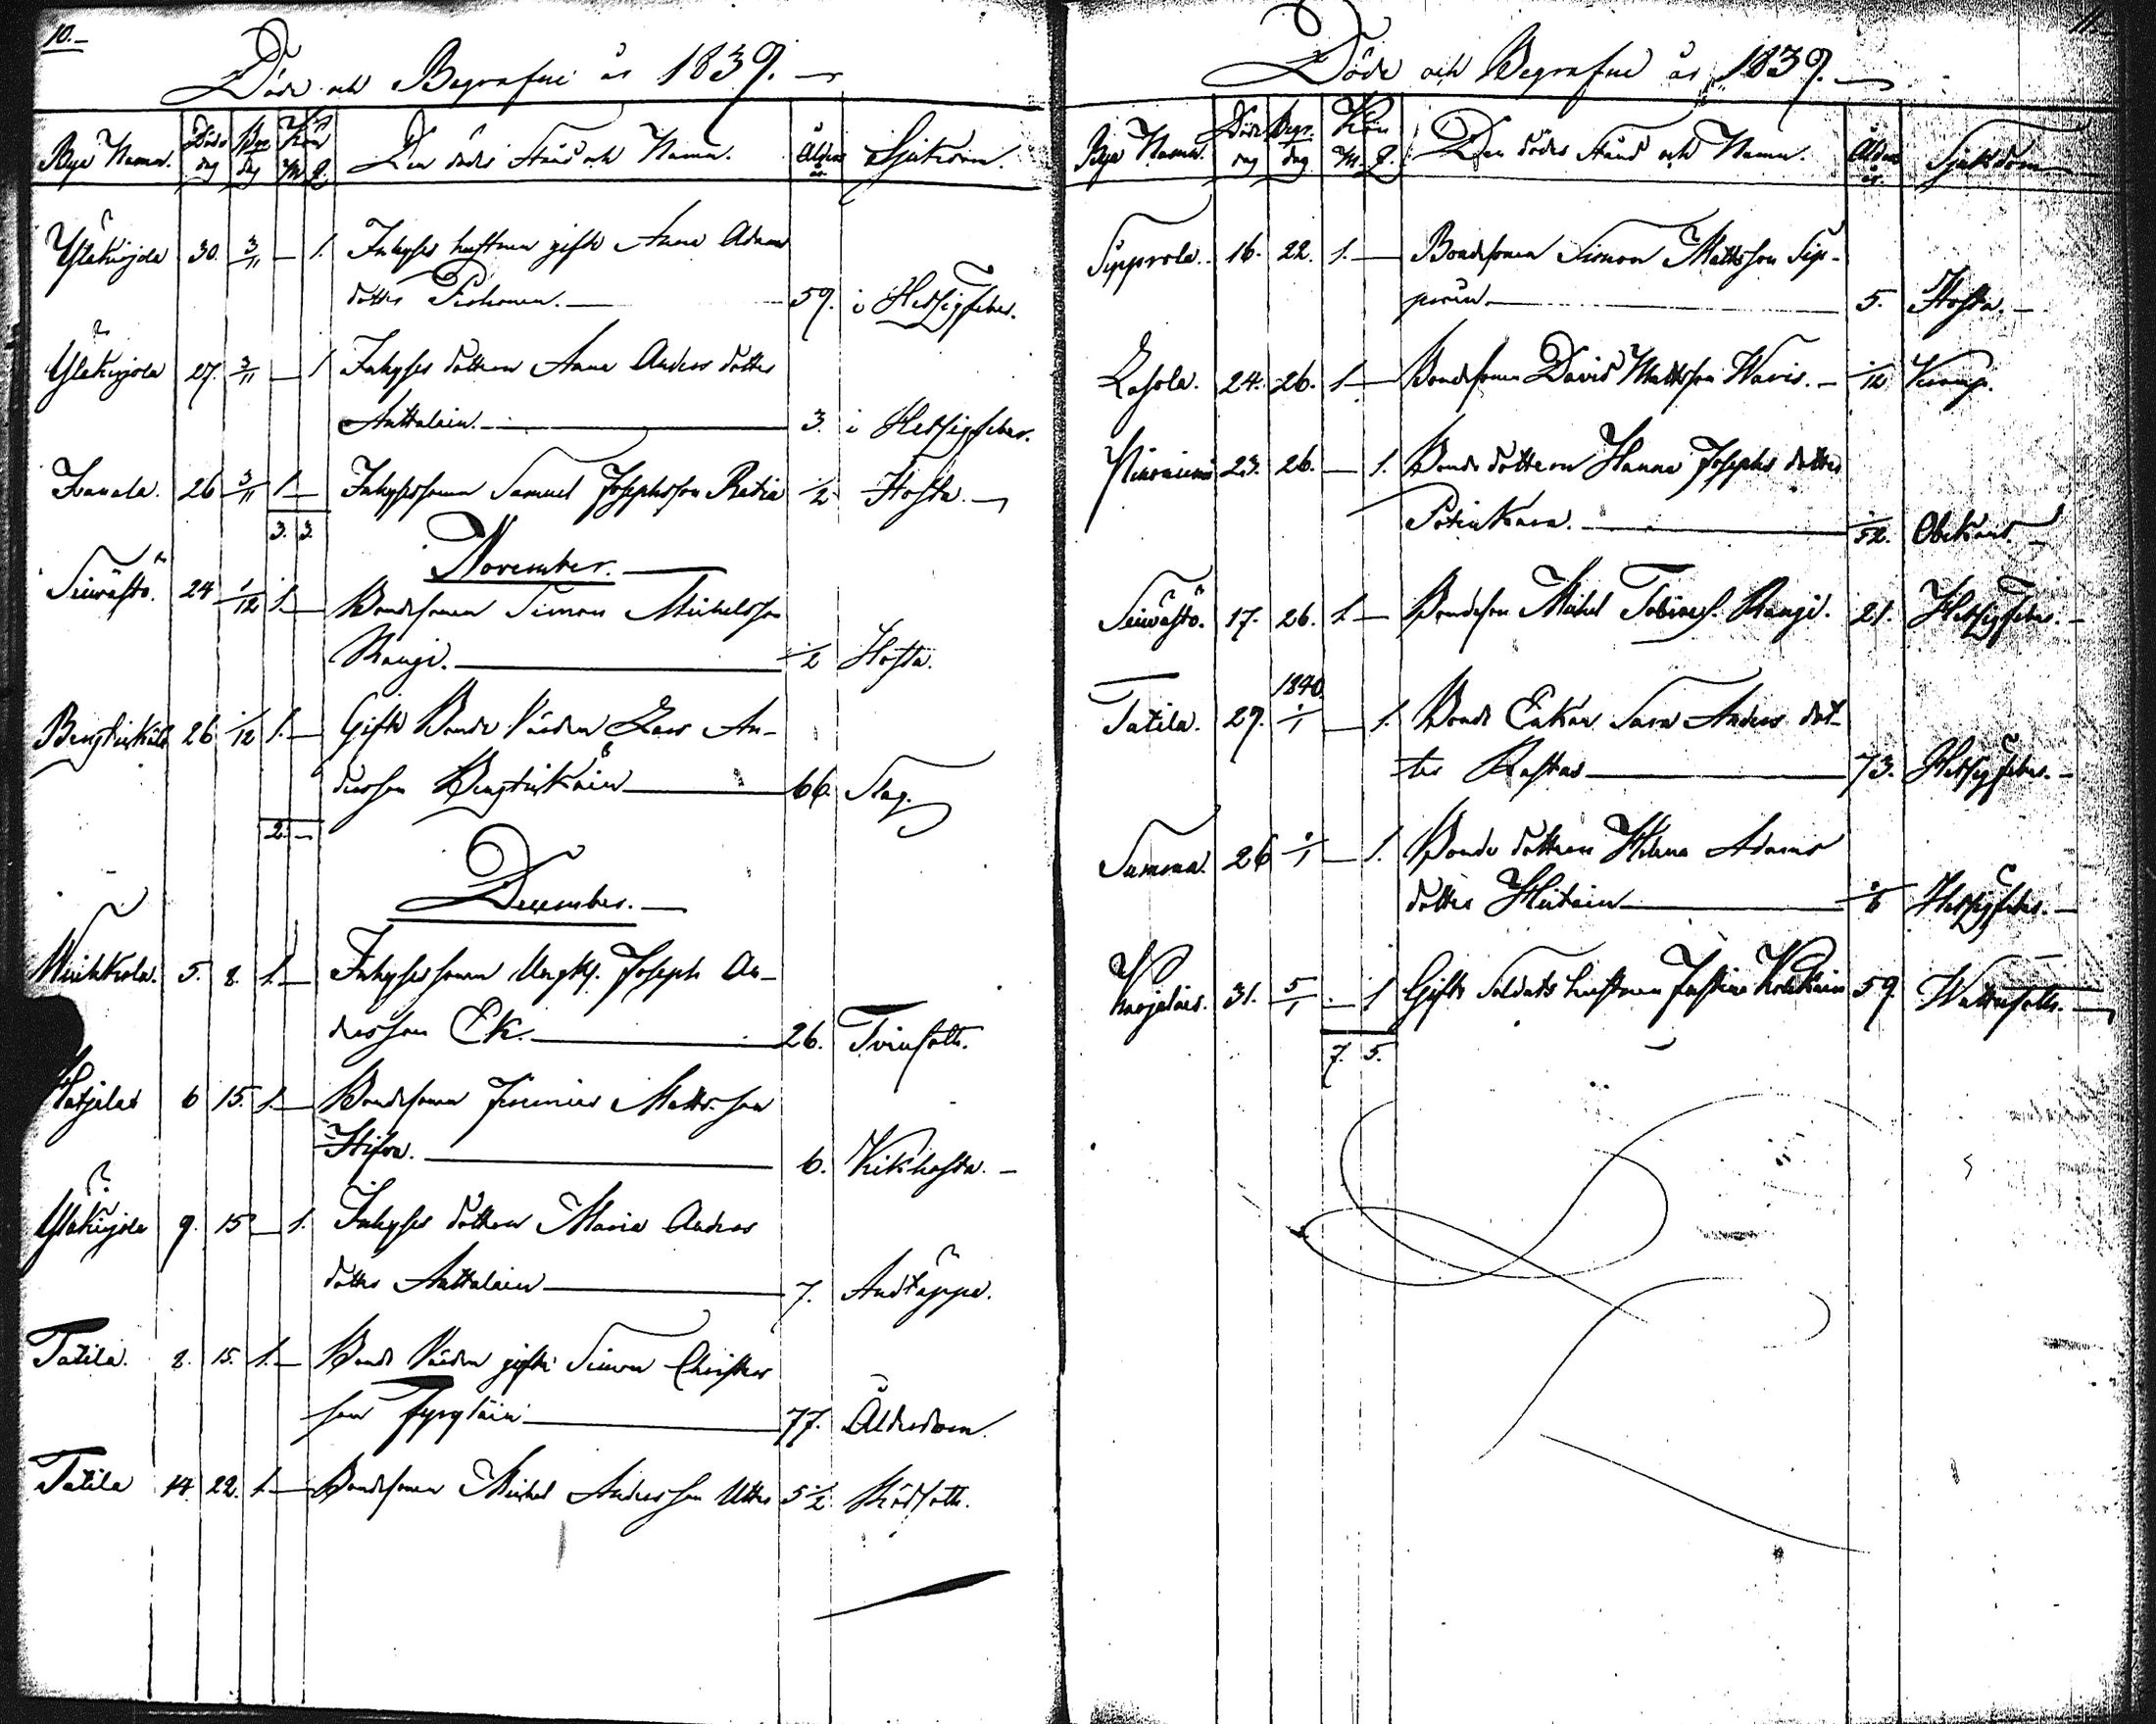 10.
Döde och Begrafne år 1839.
Bya Namn. Döds dag Begr. dag Kön M. Q. Den dödes Stånd och Namn. Ålder år Sjukdom.
Yläkirjola 30. 3/11 — 1. Inhyses hustrun gift Anna Adams
dotter Pirhonen. — 59. i Hetsigfeber.
Yläkirjola 27. 3/11 — 1 Inhyses dottren Anna Anders dotter
Anttalain. — 3. i Hetsigfeber.
Ivanala. 26 3/11 1 — Inhysessonen Samuel Josephsson Ratia 1/2 Hosta.
3. 3.
November.
Seivästö. 24 1/12 1. — Bondesonen Simon Michelsson
Raugi. — 1/2 Hosta.
26 1/12 1. — Gifte Bonde Värden Lars An-
dersson — 66. Slag.
2. —
December.
5. 8. 1. — Inhyses sonen Joseph An-
dersson Ek. — 26. Tvinsott.
6 15. 1. — Bondesonen Matts son
6. Kikhosta.
Yläkirjola 9. 15 — 1. Inhyses dottren Maria Anders
dotter Anttalain — 7. Andtäppa.
Tatila. 8. 15. 1. — Bonde Värden gifte Simon Christers
son — 77. Ålderdom.
Tatila 14. 22. 1. — Bondesonen Michel Andersson 5 1/2 Rödsott.
11.
Döde och Begrafne år 1839.
Bya Namn. Döds dag Begr. dag Kön M. Q. Den dödes Stånd och Namn. Ålder år. Sjukdom
Sipprola. 16. 22. 1. — Bondesonen Simon Mattsson Sip-
poin. — 5. Hosta.
24. 26. 1 — Bondesonen David Mattsson Waris. — 1/12 Kramp.
23. 26. — 1. Bonde dottren Hanna Josephs dotter
Potinkara. — 1/52. Obekant.
Seivästö. 17. 26. 1. — Bondeson Michel Tobiass. Raugi. 21. Hetsigfeber.
1840.
Tatila. 29. 1/1 — 1. Bonde Enkan Sara Anders dot-
ter Rastas — 73. Hetsigfeber.
Summa. 26 — 1. Bonde dottren Helena Adams
dotter — Hetsigfeber.
Karjalais. 31. 5/1 — 1 Gifte Soldats hustrun Justina 59. Wattusott.
7. 5.